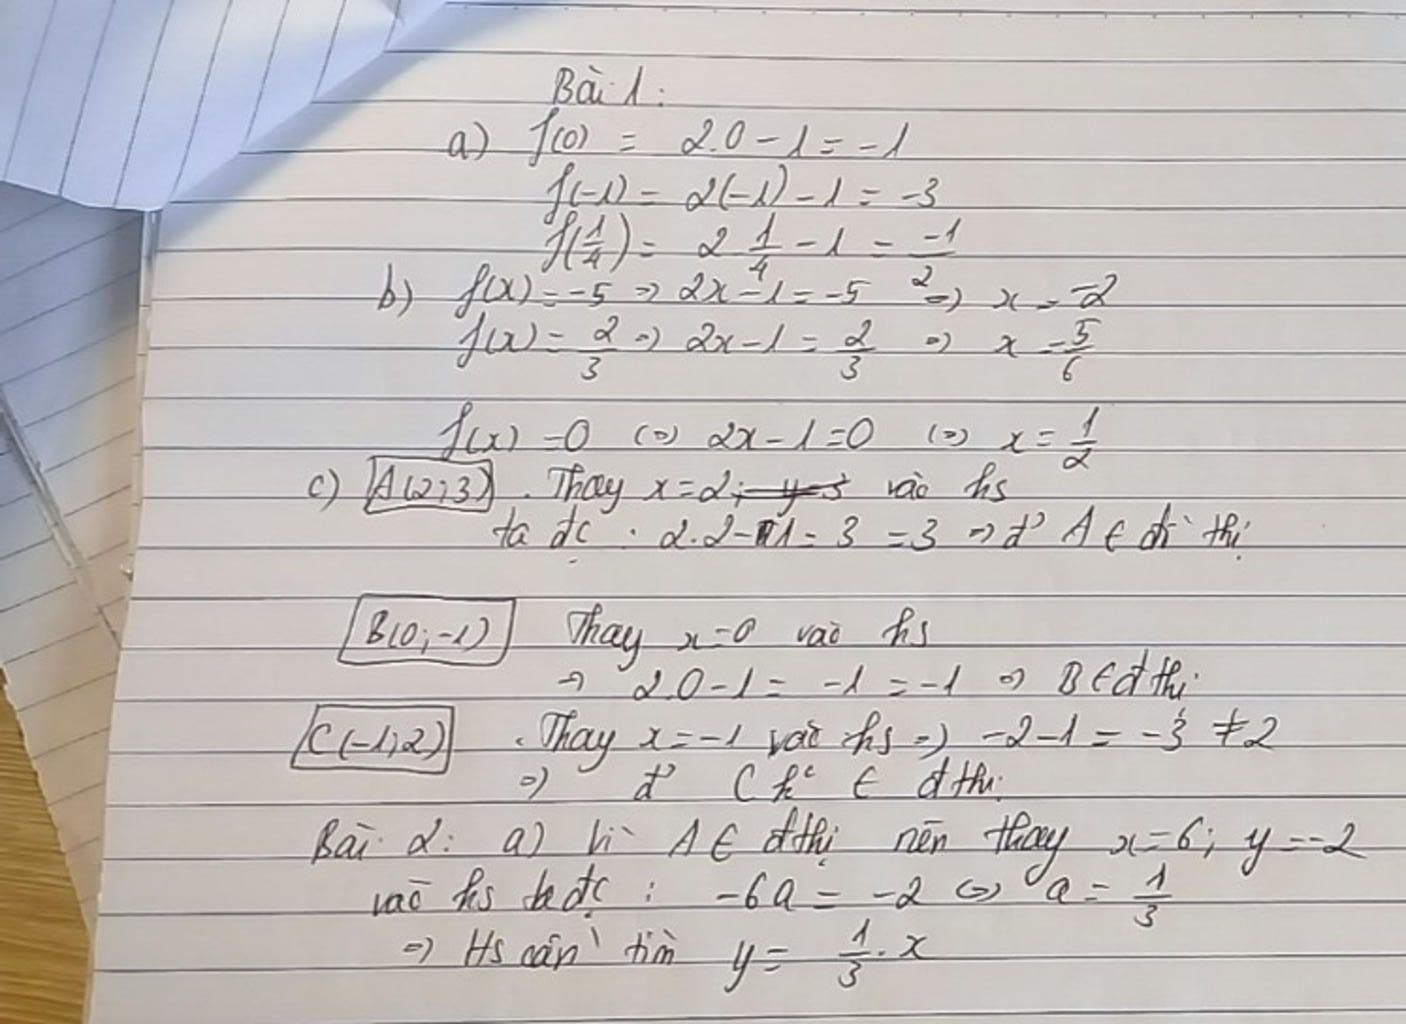 Bài 1:
a) f(0) = 2.0 - 1 = -1
f(-1) = 2(-1) - 1 = -3
f(1/4) = 2 1/4 - 1 = -1/2
b) f(x) = -5 => 2x - 1 = -5 => x = -2
f(x) = 2/3 => 2x - 1 = 2/3 => x = 5/6
f(x) = 0 <=> 2x - 1 = 0 <=> x = 1/2
c) A(2;3) . Thay x = 2; y = 3 vào hs
ta đc : 2.2 - 1 = 3 = 3 => đ' A ∈ đồ thị
B(0;-1) Thay x = 0 vào hs
=> 2.0 - 1 = -1 = -1 => B ∈ đ thị
C(-1;2) . Thay x = -1 vào hs => -2 - 1 = -3 ≠ 2
=> đ' C k° ∈ đ thị
Bài 2: a) Vì A ∈ đ thị nên thay x = 6; y = -2
vào hs ta đc : -6a = -2 <=> a = 1/3
=> Hs cần tìm y = 1/3 . x